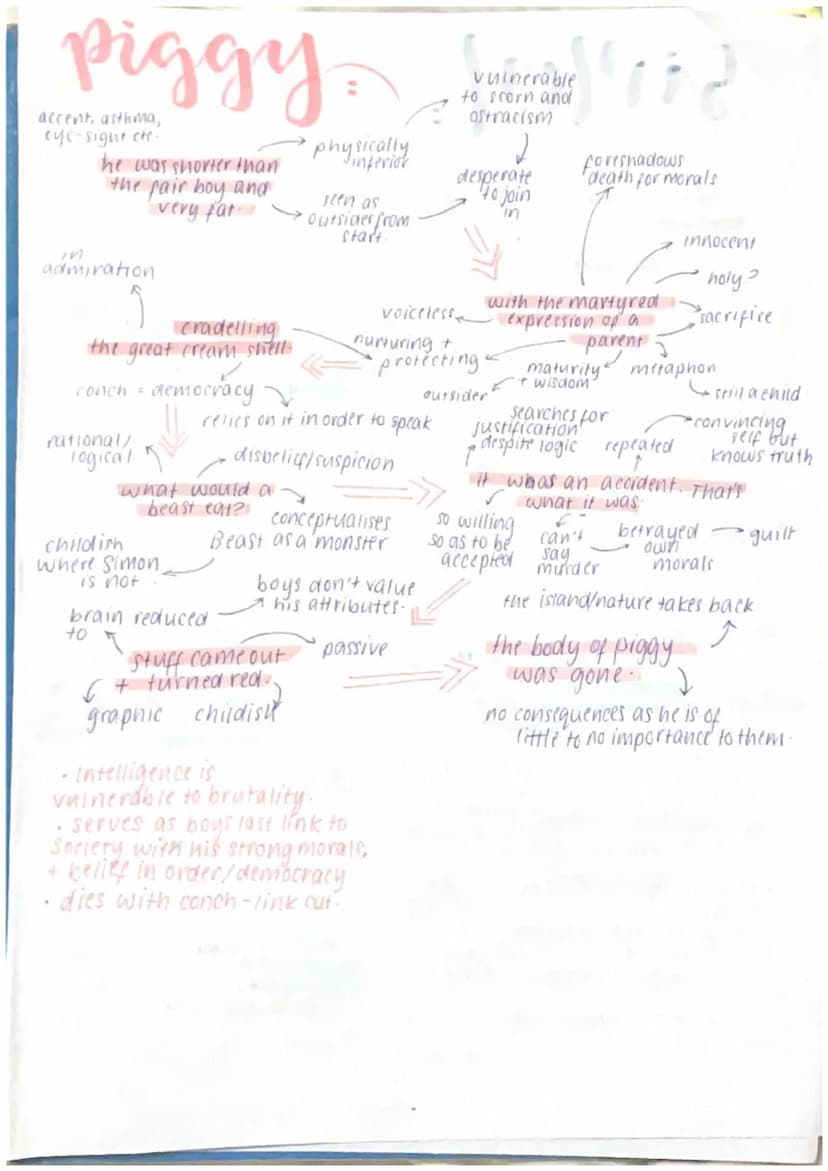 piggy:
accent, asthma,
eye-sight etc.
he was shorter than
the fair boy and
very fat.
physically
inferior
seen as
outsider from
start.
vulnerable
to scorn and
ostracism
desperate
to join
in
foreshadows
death for morals
innocent
holy?
sacrifice
with the martyred
expression of a
parent
voiceless
nurturing +
protecting
maturity
+ wisdom
outsider
metaphor
still a child
in
admiration
cradelling
the great cream shell
conch = democracy
relies on it in order to speak
rational/
logical
disbelief/suspicion
what would a
beast eat?
conceptualises
Beast as a monster
childish
where Simon
is not.
searches for
justification
despite logic
repeated
convincing
self but
knows truth
it was an accident. That's
what it was.
so willing
so as to be
accepted
can't
say
murder
betrayed
own
morals
guilt
boys don't value
his attributes.
brain reduced
to
stuff came out
+ turned red.
passive
graphic childish
the island/nature takes back
the body of piggy
was gone.
no consequences as he is of
little to no importance to them.
• Intelligence is
vulnerable to brutality.
• serves as boys last link to
society with his strong morals,
+ belief in order/democracy
• dies with conch - link cut.